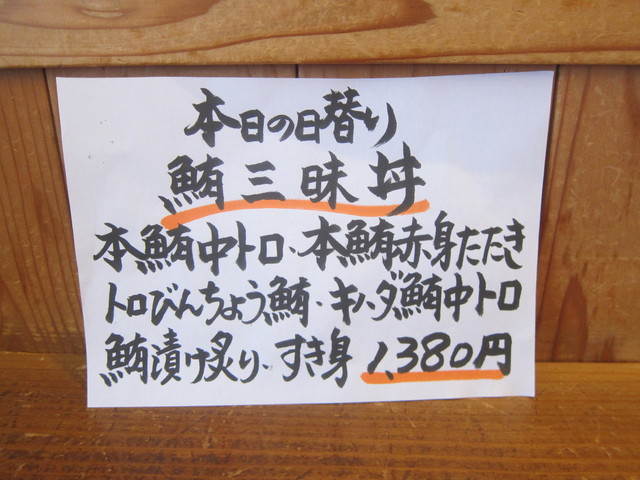 本日の日替り
鮪三昧丼
本鮪中トロ、本鮪赤身たたき
トロびんちょう鮪、キハダ鮪中トロ
鮪漬け炙り、すき身 1,380円